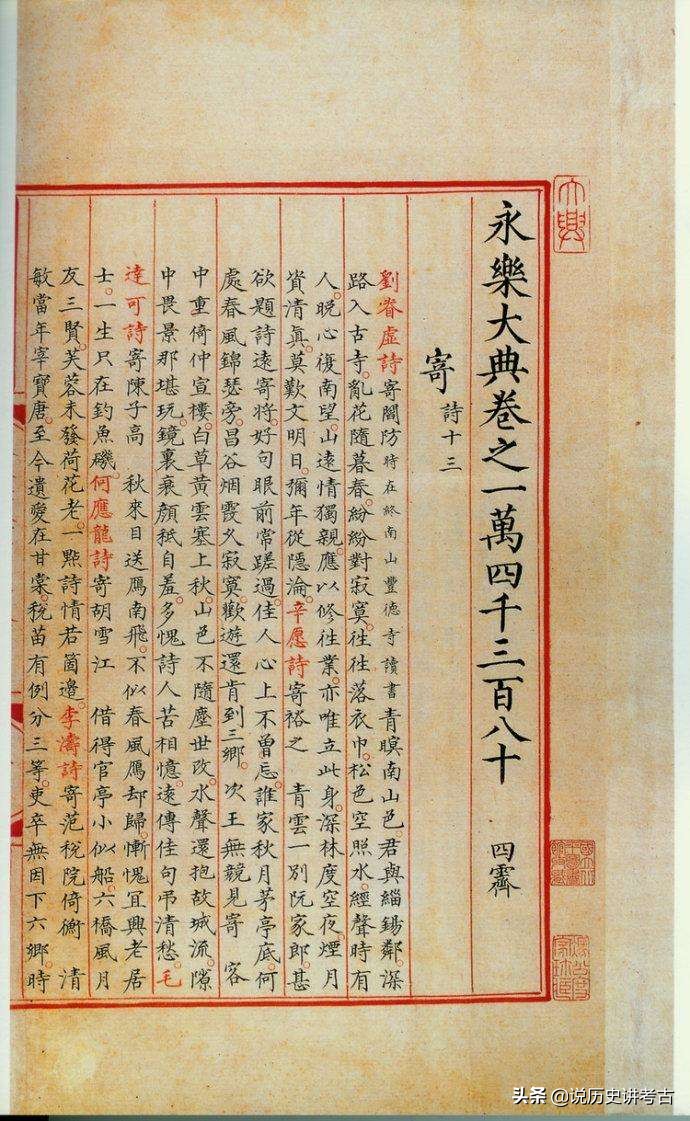 永樂大典卷之一萬四千三百八十 四霽
寄 詩十三
劉眘虛詩寄閻防時在終南山豐德寺讀書青暝南山色君與緇錫鄰深
路入古寺亂花隨暮春紛紛對寂寞徃徃落衣巾松色空照水經聲時有
人晚心復南望山遠情獨親應以修徃業亦唯立此身深林度空夜煙月
資清眞莫歎文明日彌年從隱淪辛愿詩寄裕之 青雲一別阮家郎甚
欲題詩遠寄將好句眼前常蹉過佳人心上不曾忘誰家秋月茅亭底何
處春風錦瑟旁昌谷烟霞久寂寞歡遊還肯到三鄉次王無競見寄 客
中重倚仲宣樓白草黃雲塞上秋山色不隨塵世改水聲還抱故城流隙
中畏景那堪玩鏡裏衰顏秪自羞多愧詩人苦相憶遠傳佳句弔清愁毛
達可詩寄陳子高 秋來目送鴈南飛不似春風鴈却歸慚愧宜興老居
士一生只在釣魚磯何應龍詩寄胡雪江 借得官亭小似船六橋風月
友三賢芙蓉未發荷花老一點詩情若箇邉李濤詩寄范稅院倚衡 清
敏當年宰寶唐至今遺愛在甘棠稅苗有例分三等吏卒無因下六鄉時
头条 @说历史讲考古